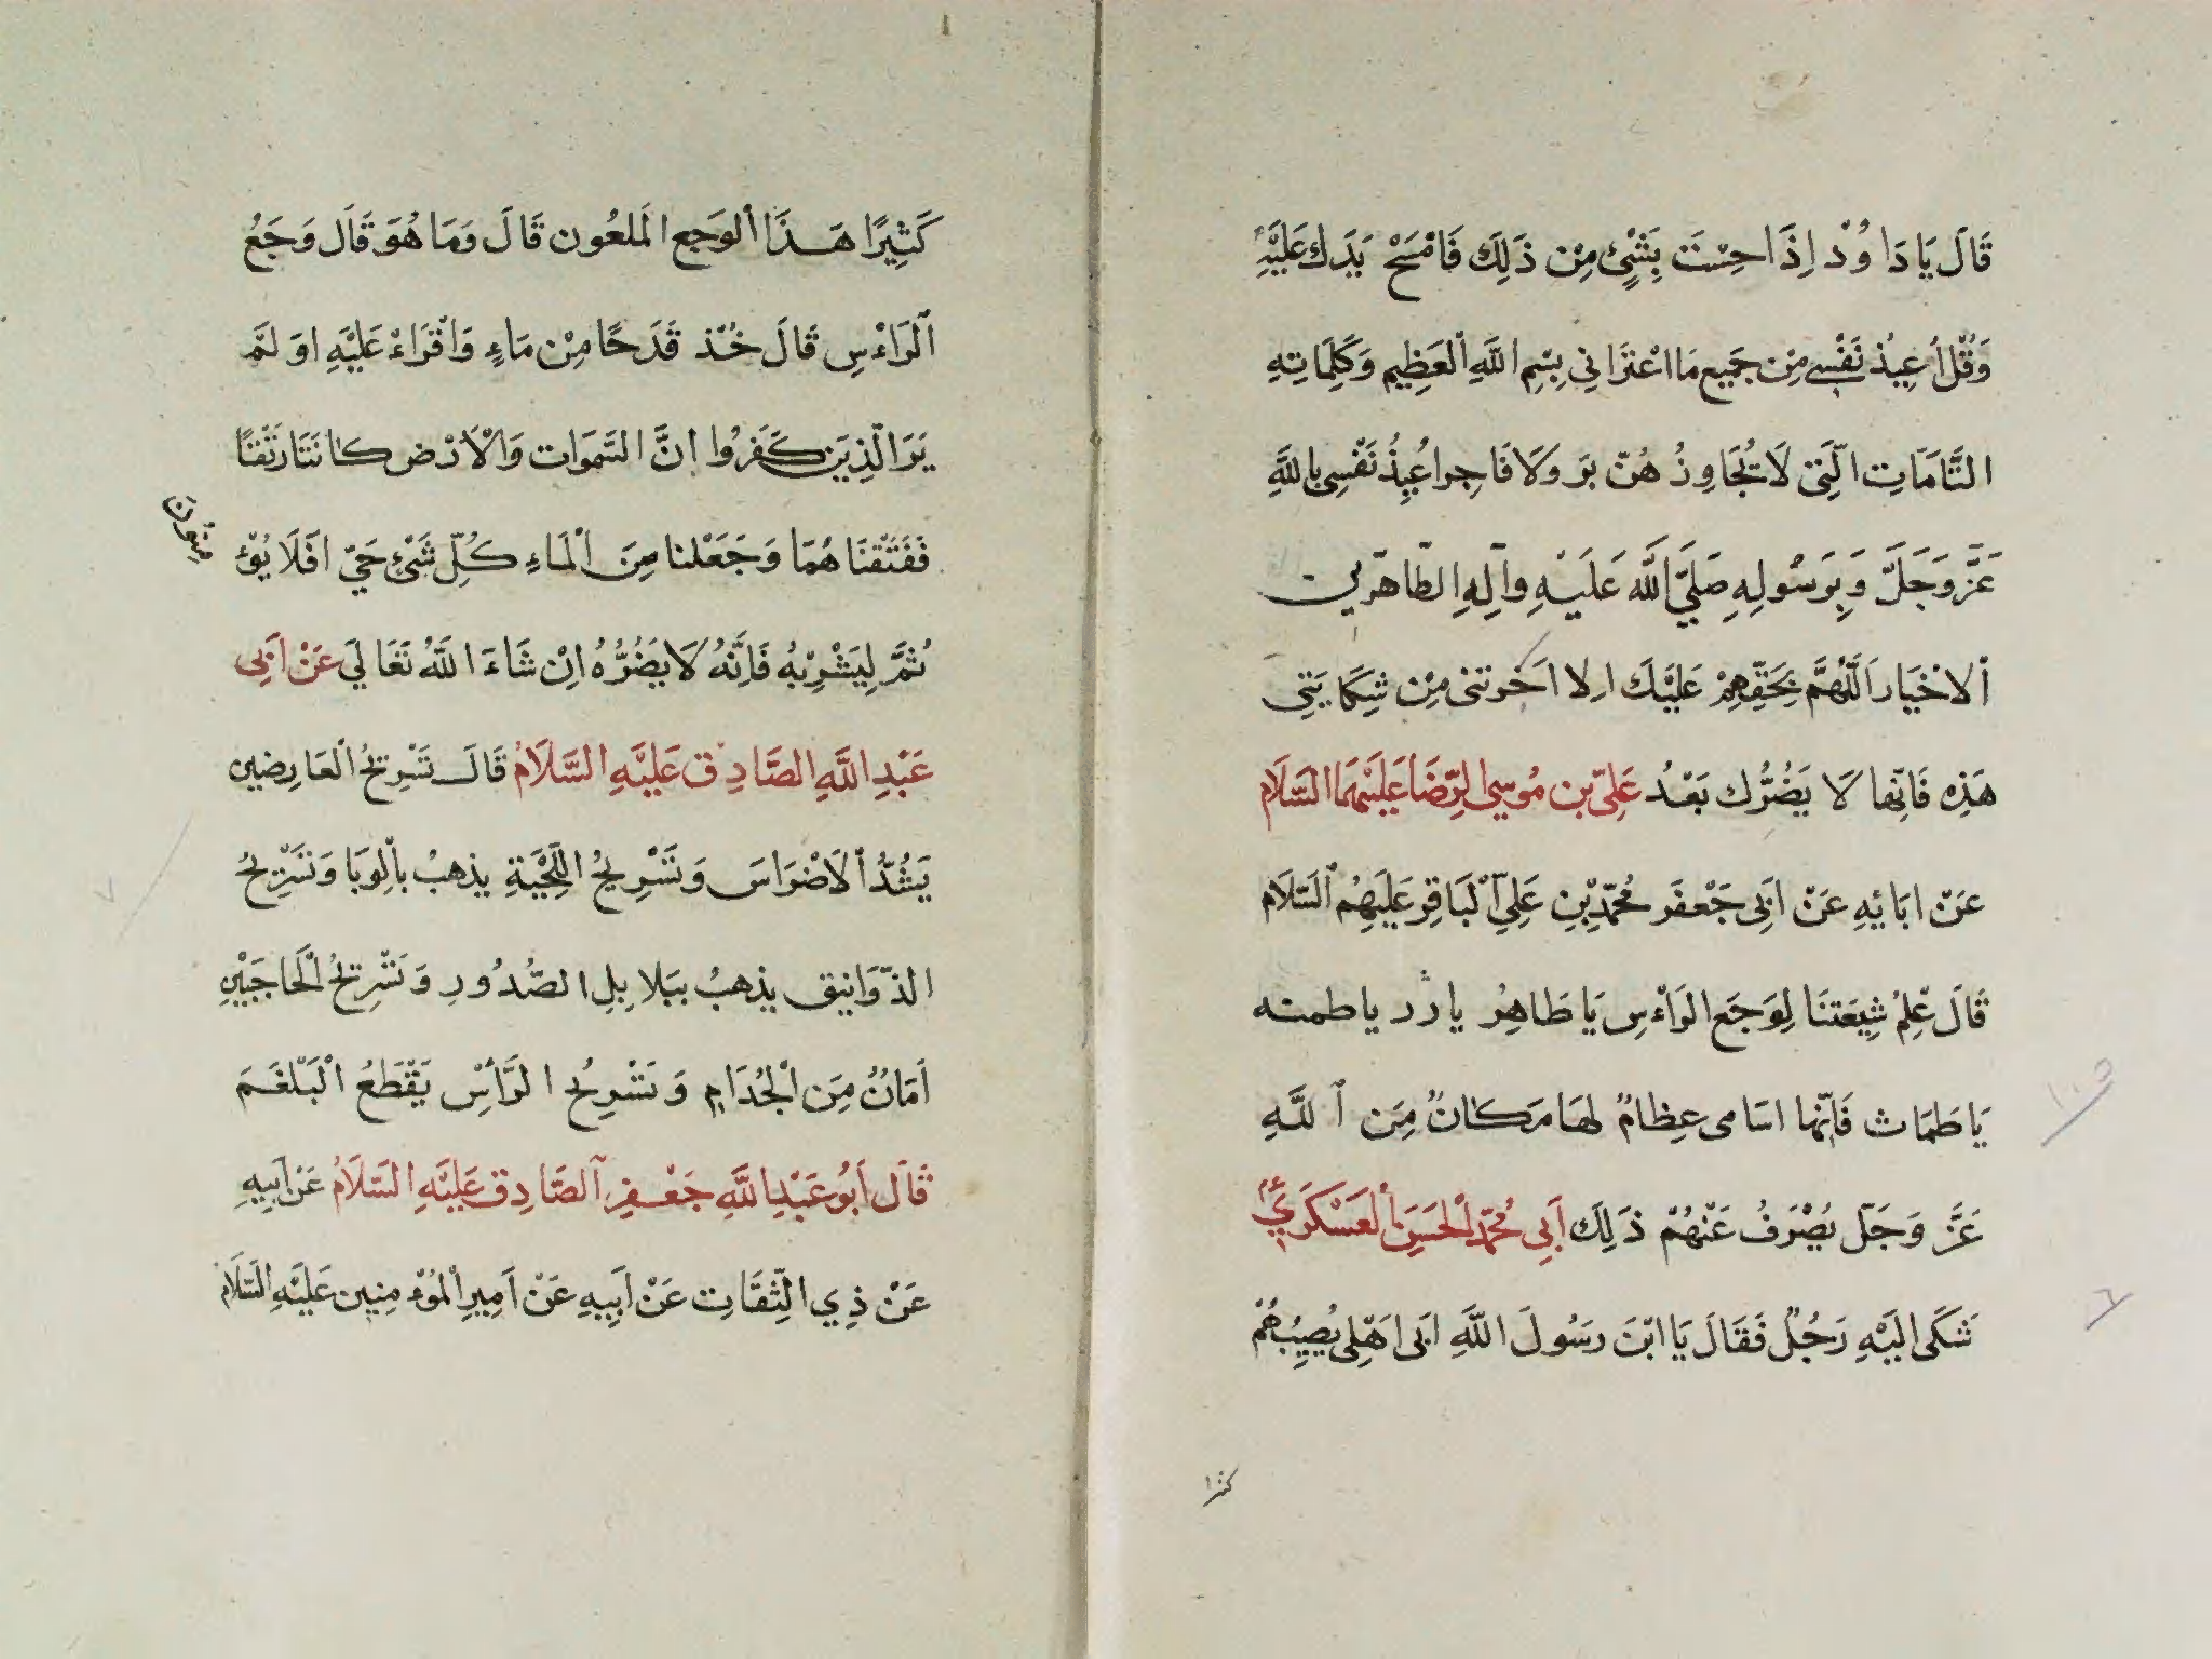 قَالَ يَا دَا وُدْ اِذَا حِسْتَ بِشَيْءٍ مِنْ ذَلِكَ فَامْسَحْ يَدَكَ عَلَيْهِ
وَقُلْ اُعِيذُ نَفْسِي مِنْ جَمِيع مَا اعْتَرَانِي بِسْمِ اللَّهِ الْعَظِيمِ وَكَلِمَاتِهِ
التَّامَّاتِ الَّتِي لَا تُجَاوِزُ هُنّ بَر وَلَا فَاجِر اُعِيذُ نَفْسِي بِاللَّهِ
عَزَّ وَجَلَّ وَبِرَسُولِهِ صَلَّيَ اللَّه عَلَيْهِ وآلِهِ الطّاهرين
الْاخْيَار اَللَّهُمَّ بِحَقِّهِمْ عَلَيْكَ الا اَجرتنى مِنْ شِكَايَتِي
هَذِهِ فَاِنّها لَا يَضُرُّك بَعْدُ عَلِيّ بن مُوسي الرِّضَا عَلَيْهِمَا السَّلَام
عَنْ ابَائِهِ عَنْ اَبِي جَعْفَر مُحَمَّدِ بْنِ عَلِيّ الْبَاقِر عَلَيْهِمُ السَّلَام
قَالَ عِلِمْ شِيَعَتنَا لِوَجَع الرَاءْسِ يَا طَاهِرُ يا ذر يا طمنه
يَا طَمَاث فَاِنّها اسَامى عِظامٌ لهَا مَكَانٌ مِنَ اللَّهِ
عَزَّ وَجَلّ يُصْرَفُ عَنْهُمْ ذَلِكَ اَبِي مُحَمَّدِ الْحَسَنِ الْعَسْكَرِيّ
شَكَى اِلَيْهِ رَجُلٌ فَقَالَ يَا ابْنَ رسُولَ اللَّهِ ابى اهْلِى يُصِيبُهُمْ
كثيرا
كَثِيرًا هَذَا الْوَجَع الْمَلعُون قَالَ وَمَا هُوَ قَالَ وَجَعُ
الرَاءْسِ قَالَ خُذ قَدَحًا مِنْ مَاءٍ وَاقْرَاءْ عَلَيْهِ اوَ لَمْ
يَرَ الَّذِينَ كَفَرُوا انَّ السَّمَوَات وَالْاَرْض كَانَتَا رَتْقًا
فَفَتَقْنَا هُمَا وَجَعَلْنا مِنَ الْمَاءِ كُلّ شَيْءٍ حَيّ افَلَا يُؤْ منون
ثُمَّ لِيَشْرِبْهُ فَاِنَّهُ لَا يَضُرُّهُ اِنْ شَاءَ اللَّهُ تَعَا لَي عَنْ اَبِي
عَبْدِ اللَّهِ الصَّادِق عَلَيْهِ السَّلَامُ قَالَ تَسْرِيحُ الْعَارِضين
يَشُدُّ الْاَضْرَاسَ وَتَسْرِيحُ اللِّحْيَةِ يذهبُ بالْوبَا وَتَسْرِيحُ
الذّوَانيق يذهبُ ببَلا بِلِ الصُّدُورِ وَتَسْرِيحُ الْحَاجَبَيْنِ
اَمَانٌ مِنَ الْجُدَامِ وَتَسْرِيحُ الرَّاْسْ يَقْطَعُ الْبَلْغَمَ
قَالَ اَبُو عَبْدِ اللَّهِ جَعْفر الصَّادِق عَلَيْهِ السَّلَامُ عَنْ اَبِيهِ
عَنْ ذِي الثِّقَاتِ عَنْ اَبِيهِ عَنْ اَمِيرِ الْمُؤْ مِنِين عَلَيْهِ السَّلَام